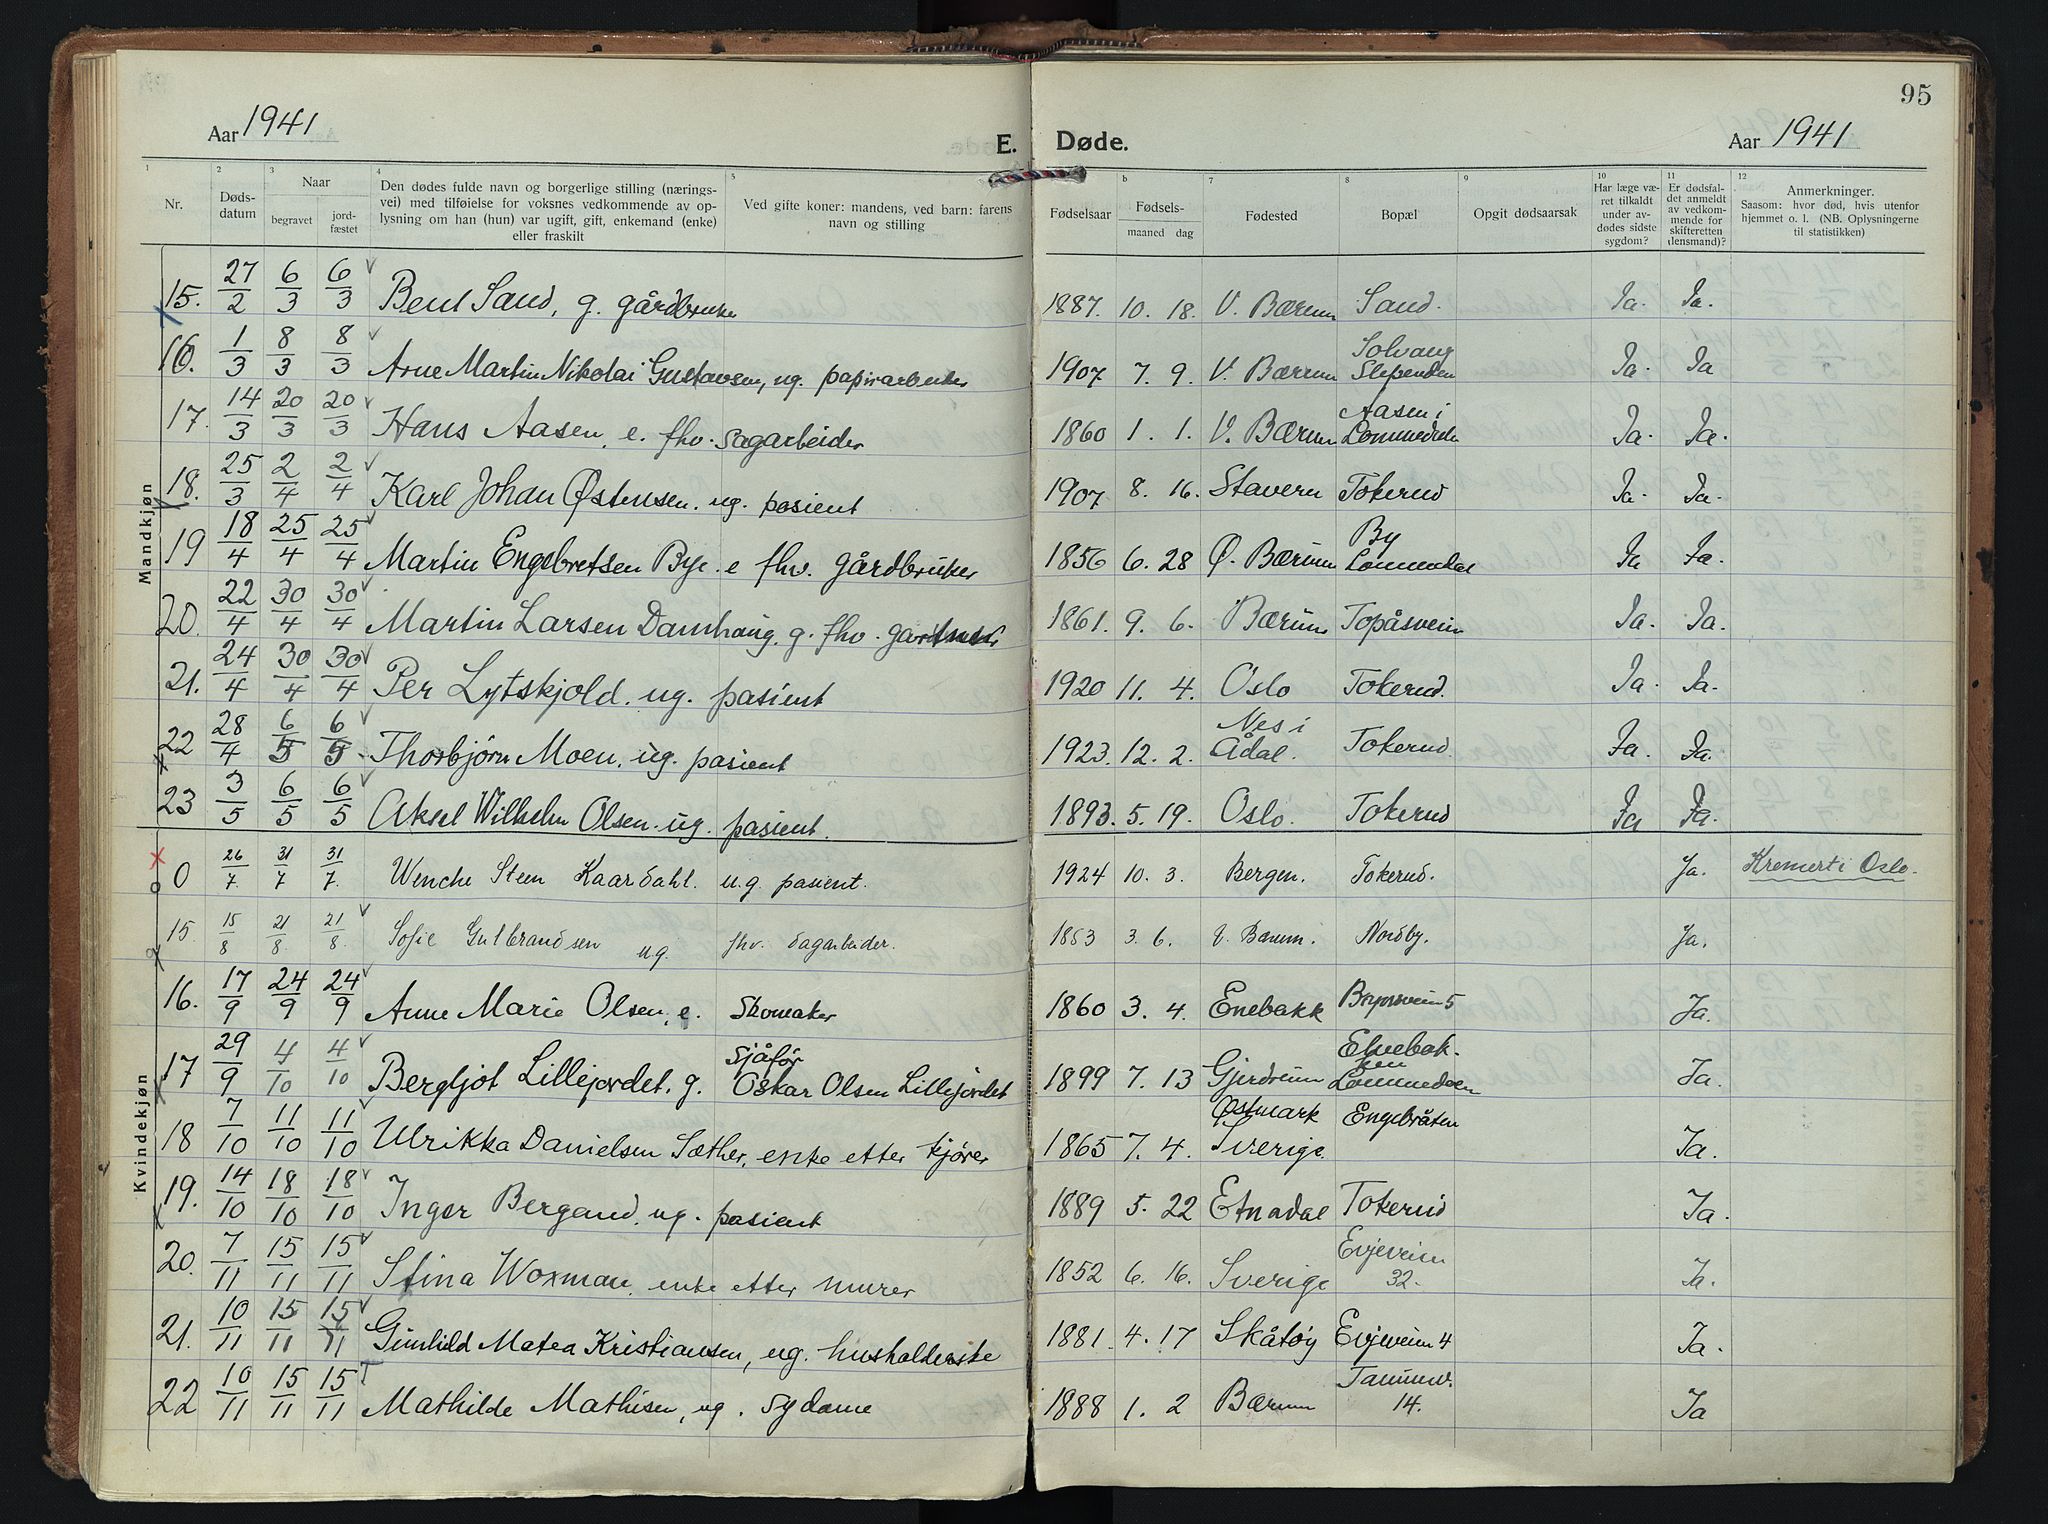 95
Aar 1941
E. Døde.
Aar 1941
1 2 3 4 5 6 7 8 9 10 11 12
Nr.
Dødsdatum
Naar
begravet
jordfæstet
Den dødes fulde navn og borgerlige stilling (næringsvei) med tilføielse for voksnes vedkommende av oplysning om han (hun) var ugift, gift, enkemand (enke) eller fraskilt
Ved gifte koner: mandens, ved barn: farens navn og stilling
Fødselsaar
Fødselsmaaned dag
Fødested
Bopæl
Opgit dødsaarsak
Har læge været tilkaldt under avdødes sidste sygdom?
Er dødsfaldet anmeldt av vedkommende for skifteretten (lensmand)?
Anmerkninger. Saasom: hvor død, hvis utenfor hjemmet o. l. (NB. Oplysningerne til statistikken)
Mandkjøn
15. 27/2 6/3 6/3 Bent Sand, g. gårdbruker 1887. 10. 18. V. Bærum Sand. Ja. Ja.
16. 1/3 8/3 8/3 Arne Martin Nikolai Gustavsen, ug. papirarbeider 1907 7. 9. V. Bærum Solvang Slependen Ja. Ja
17. 14/3 20/3 20/3 Hans Aasen, e. fhv. sagarbeider 1860 1. 1. V. Bærum Aasen i Lommedalen Ja. Ja.
18. 25/3 2/4 2/4 Karl Johan Østensen. ug. pasient 1907 8. 16. Stavern Tokerud Ja. Ja.
19 18/4 25/4 25/4 Martin Engebretsen Bye. e fhv. gårdbruker 1856 6. 28 Ø. Bærum By Lommedal Ja Ja.
20. 22/4 30/4 30/4 Martin Larsen Damhaug. g. fhv. gartner 1861. 9. 6. Bærum Topåsveien Ja. Ja.
21. 24/4 30/4 30/4 Per Lytskjold. ug. pasient 1920 11. 4. Oslo Tokerud. Ja. Ja.
22 28/4 6/5 6/5 Thorbjørn Moen. ug. pasient 1923. 12. 2. Nes i Ådal. Tokerud Ja. Ja.
23 3/5 6/5 6/5 Aksel Wilhelm Olsen. ug. pasient. 1893. 5. 19. Oslo. Tokerud Ja Ja.
Kvindekjøn
0 26/7. 31/7 31/7. Wenche Steen Kaardahl. u.g. pasient. 1924 10. 3. Bergen. Tokerud. Ja. Kremert i Oslo.
15. 15/8 21/8. 21/8. Sofie Gulbrandsen ug. fhv. dagarbeider. 1853 3. 6. V. Bærum. Nordby. Ja.
16. 17/9 24/9 24/9 Anne Marie Olsen, e. Skomaker 1860 3. 4. Enebakk 5 Ja.
17 29/9 4/10 4/10 Bergljot Lillejordet. g. sjåfør Oskar Olsen Lillejordet 1899 7. 13 Gjerdrum Elvebakken Lommedalen Ja.
18 7/10 11/10 11/10 Ulrikka Danielsen Sæther, enke etter kjører 1865 7. 4. Østmark Sverige. Engebråten Ja.
19. 14/10 18/10 18/10 Inger Bergsrud. ug. pasient 1889 5. 22 Etnedal Tokerud Ja.
20. 7/11 15/11 15/11 Stina Woxman, enke etter murer 1852 6. 16. Sverige Evjeveien 32. Ja.
21. 10/11 15/11 15/11 Gunhild Matea Kristiansen, ug. husholderske 1881. 4. 17 Skåtøy Evjeveien 4 Ja.
22 10/11 15/11 15/11 Mathilde Mathisen, ug. sydame 1888 1. 2 Bærum 14. Ja